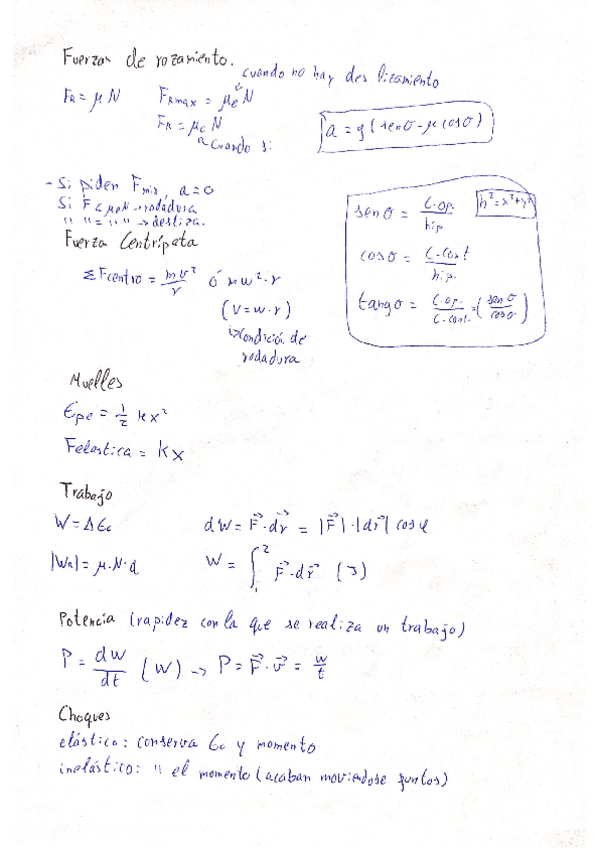 Fuerzas de rozamiento.
cuando no hay deslizamiento
FR = μN
FRmax = μe N
FR = μc N
cuando sí
a = g (senσ - μ cosσ)
- Si piden Fmin, a = 0
Si F ≤ μeN → rodadura
" " = " " → desliza.
Fuerza Centrípeta
ΣFcentro = mv²/r ó mw²·r
(v = w·r)
↳ Condición de
rodadura
senσ = C.op./hip
h² = x² + y²
cosσ = C.cont/hip.
tangσ = C.op./C.cont. = (senσ/cosσ)
Muelles
Epe = 1/2 kx²
Felastica = kx
Trabajo
W = ΔEc
dw = F⃗·dr⃗ = |F⃗|·|dr⃗| cos φ
|WR| = μ·N·d
W = ∫₁² F⃗·dr⃗ (J)
Potencia (rapidez con la que se realiza un trabajo)
P = dw/dt (W) → P = F⃗·v⃗ = w/t
Choques
elástico: conserva Ec y momento
inelástico: " el momento (acaban moviendose juntos)